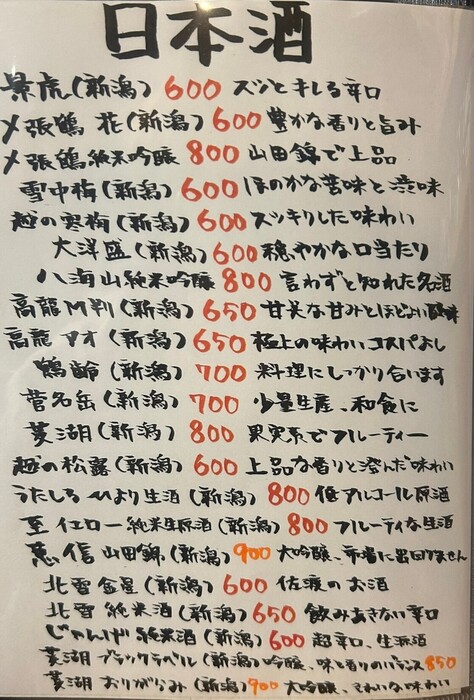 日本酒
景虎(新潟) 600 スッとキレる辛口
〆張鶴 花(新潟) 600 豊かな香りと旨み
〆張鶴純米吟醸 800 山田錦で上品
雪中梅(新潟) 600 ほのかな苦味と渋味
越の寒梅(新潟) 600 スッキリした味わい
大洋盛(新潟) 600 穏やかな口当たり
八海山純米吟醸 800 言わずと知れた名酒
高龍 (新潟) 650 甘美な甘みとほどよい酸味
高龍 (新潟) 650 極上の味わいコスパよし
鶴齢(新潟) 700 料理にしっかり合います
菅名岳(新潟) 700 少量生産、和食に
菱湖(新潟) 800 果実系でフルーティー
越の松露(新潟) 600 上品な香りと澄んだ味わい
うたしろ 生酒(新潟) 800 低アルコール原酒
至 イエロー純米生原酒(新潟) 800 フルーティな生酒
山田錦(新潟) 900 大吟醸、市場に出回りません
北雪 金星(新潟) 600 佐渡のお酒
北雪 純米酒(新潟) 650 飲みあきない辛口
じゃんげ 純米酒(新潟) 600 超辛口、生派酒
菱湖 ブラックラベル(新潟)吟醸、味と香りのバランス 850
菱湖 おりがらみ(新潟) 900 大吟醸 きれいな味わい